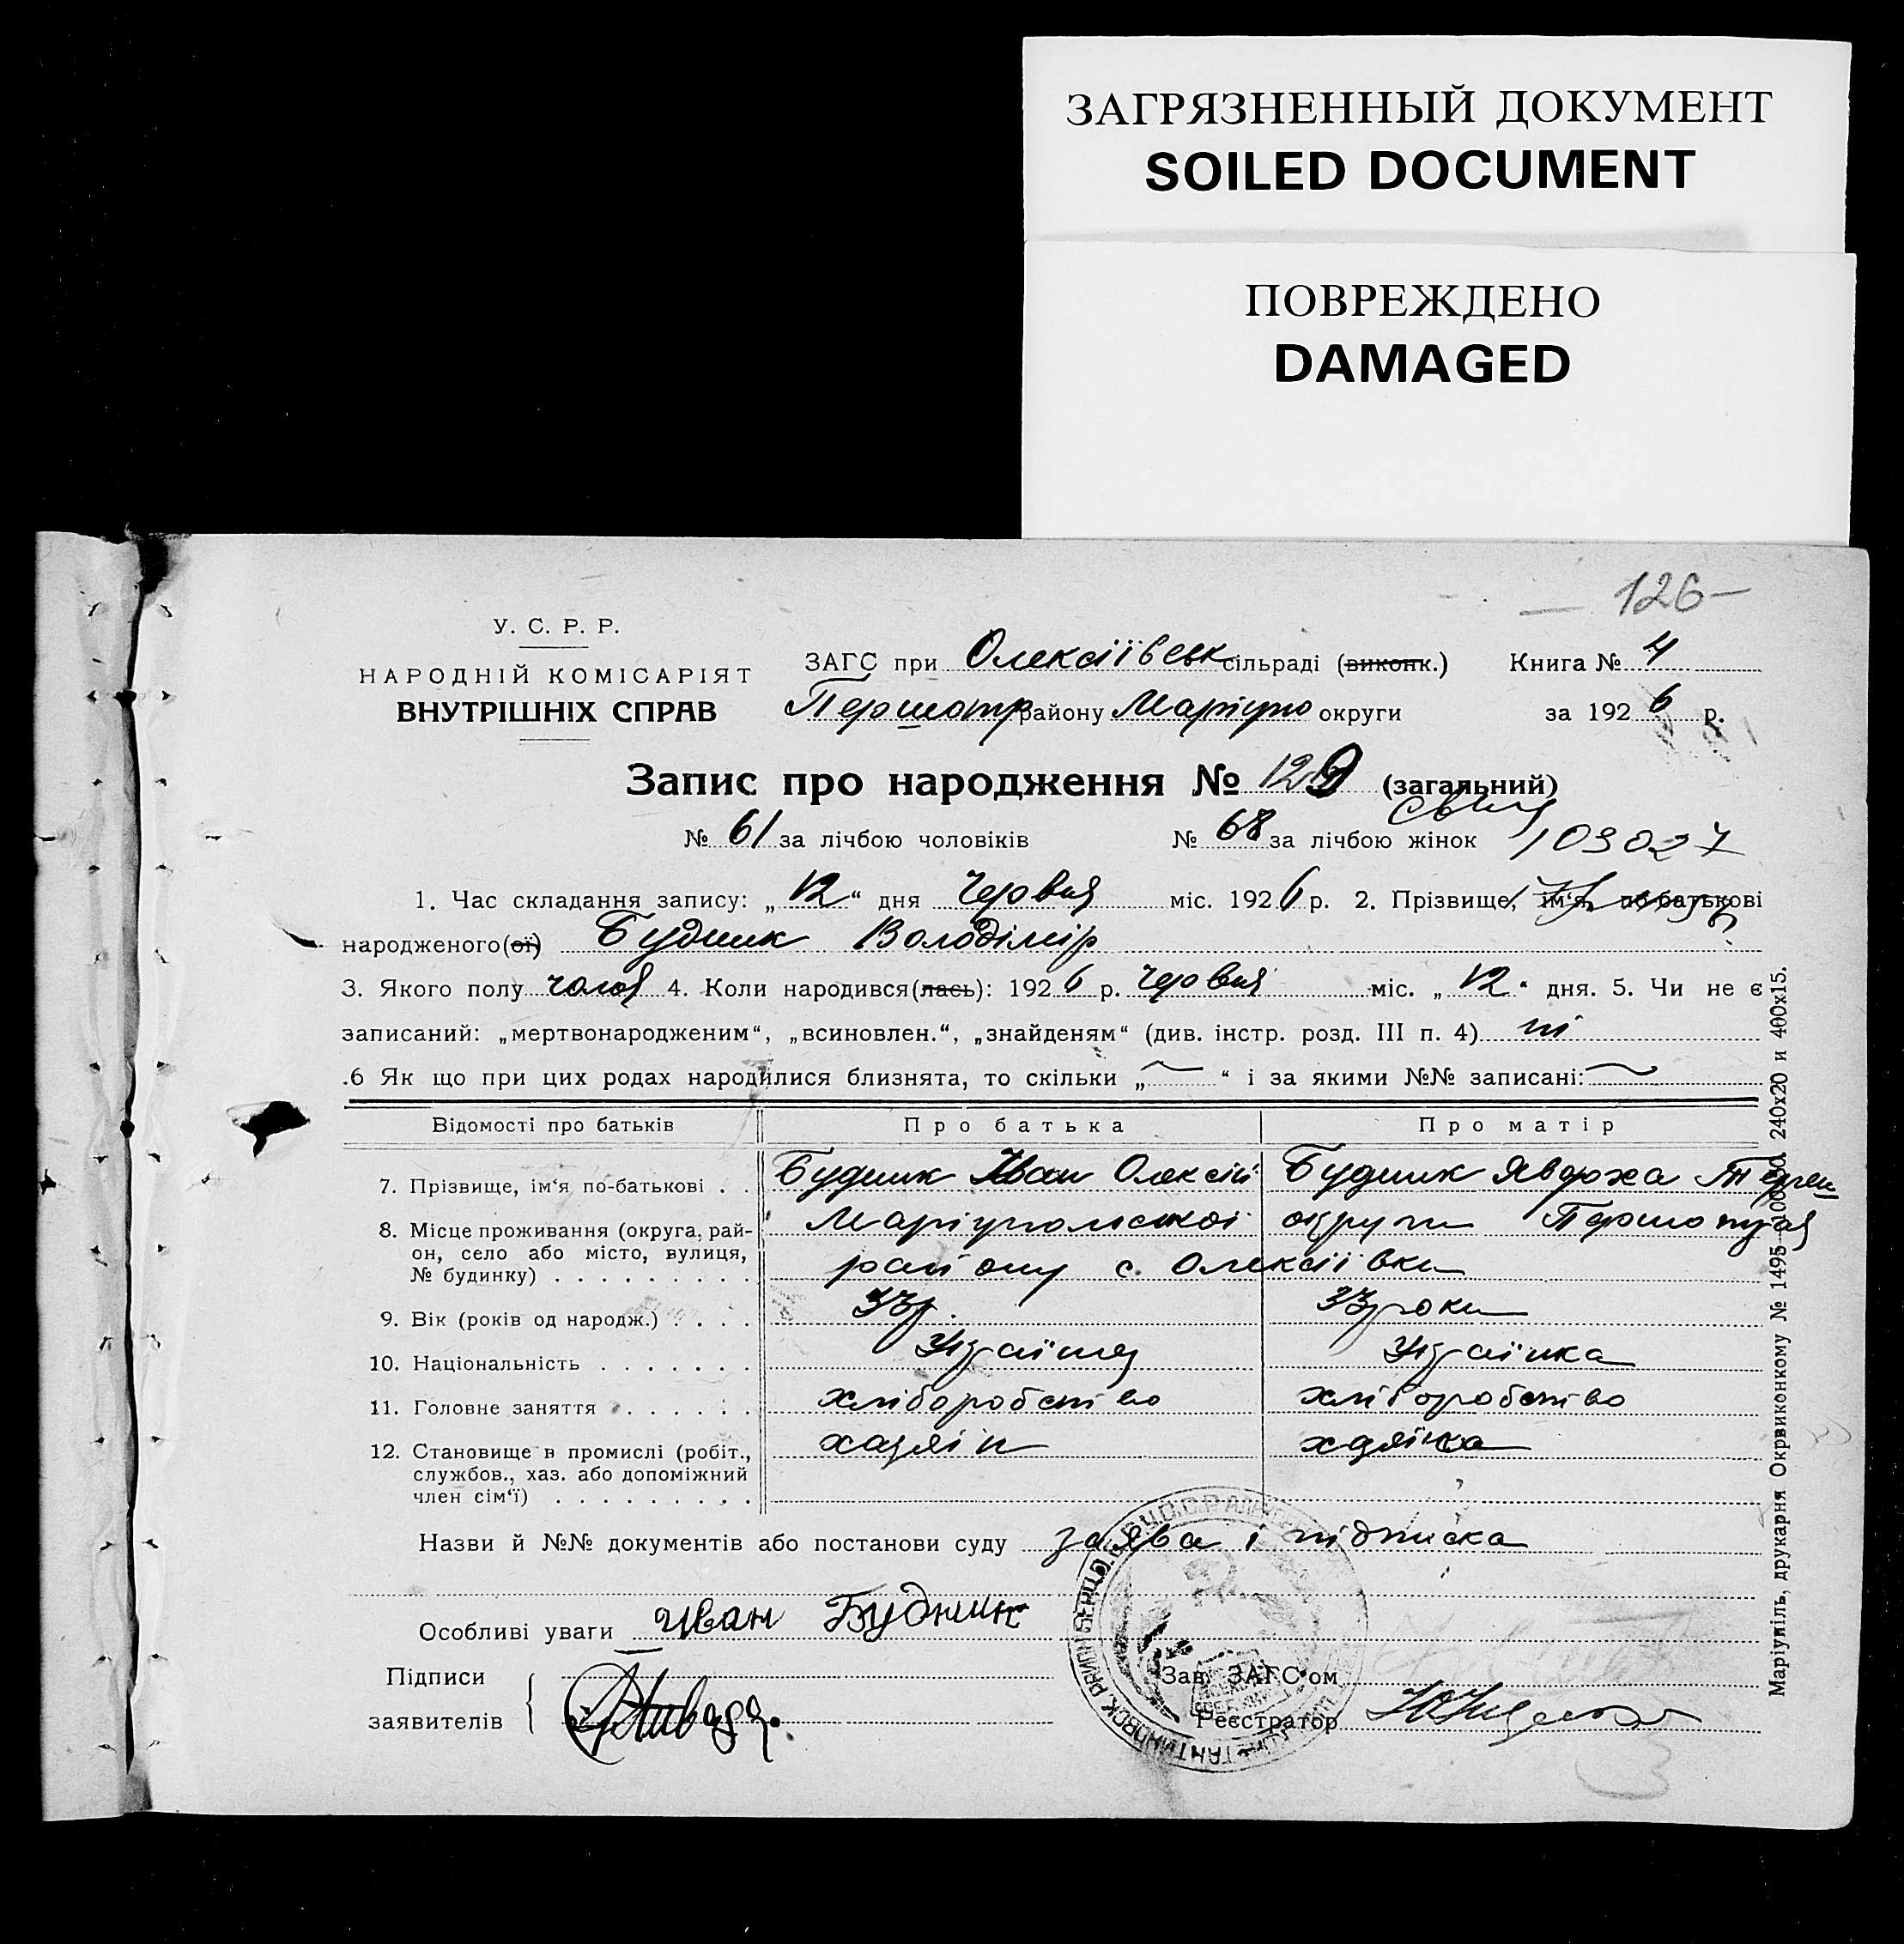 ЗАГРЯЗНЕННЫЙ ДОКУМЕНТ
SOILED DOCUMENT
ПОВРЕЖДЕНО
DAMAGED
126
У. С. Р. Р.
НАРОДНІЙ КОМІСАРІЯТ
ВНУТРІШНІХ СПРАВ
ЗАГС при Олексіївськ сільраді (виконк.) Книга № 4
Першотр району Маріупо округи за 192 6 р.
Запис про народження № 129 (загальний)
№ 61 за лічбою чоловіків № 68 за лічбою жінок 103027
1. Час складання запису: „12“ дня червня міс. 192 6 р. 2. Прізвище, ім'я, по-батькові
народженого(ої) Будник Володімір
3. Якого полу 4. Коли народився(лась): 192 6 р. червня міс. „12“ дня. 5. Чи не є
записаний: „мертвонародженим“, „всиновлен.“, „знайденям“ (див. інстр. розд. III п. 4) ні
.6 Як що при цих родах народилися близнята, то скільки „ “ і за якими №№ записані:
Відомості про батьків Про батька Про матір
7. Прізвище, ім'я по-батькові . . Будник Іван Олексій Будник Явдоха
8. Місце проживання (округа, рай-
он, село або місто, вулиця,
№ будинку) . . . . . . . . . Маріупольскої округи Першотра
району с. Олексіївки
9. Вік (років од народж.) . . . . 33 роки
10. Національність . . . . . . . Українец Українка
11. Головне заняття . . . . . . хліборобство хліборобство
12. Становище в промислі (робіт.,
службов., хаз. або допоміжний
член сім'ї) . . . . . . . . . хазяін хазяїка
Назви й №№ документів або постанови суду заява і підписка
Особливі уваги Иван Будник
Підписи
заявителів
Зав. ЗАГС'ом
Реєстратор
Маріупіль, друкарня Окрвиконкому № 1495—100000. 240х20 и 400х15.